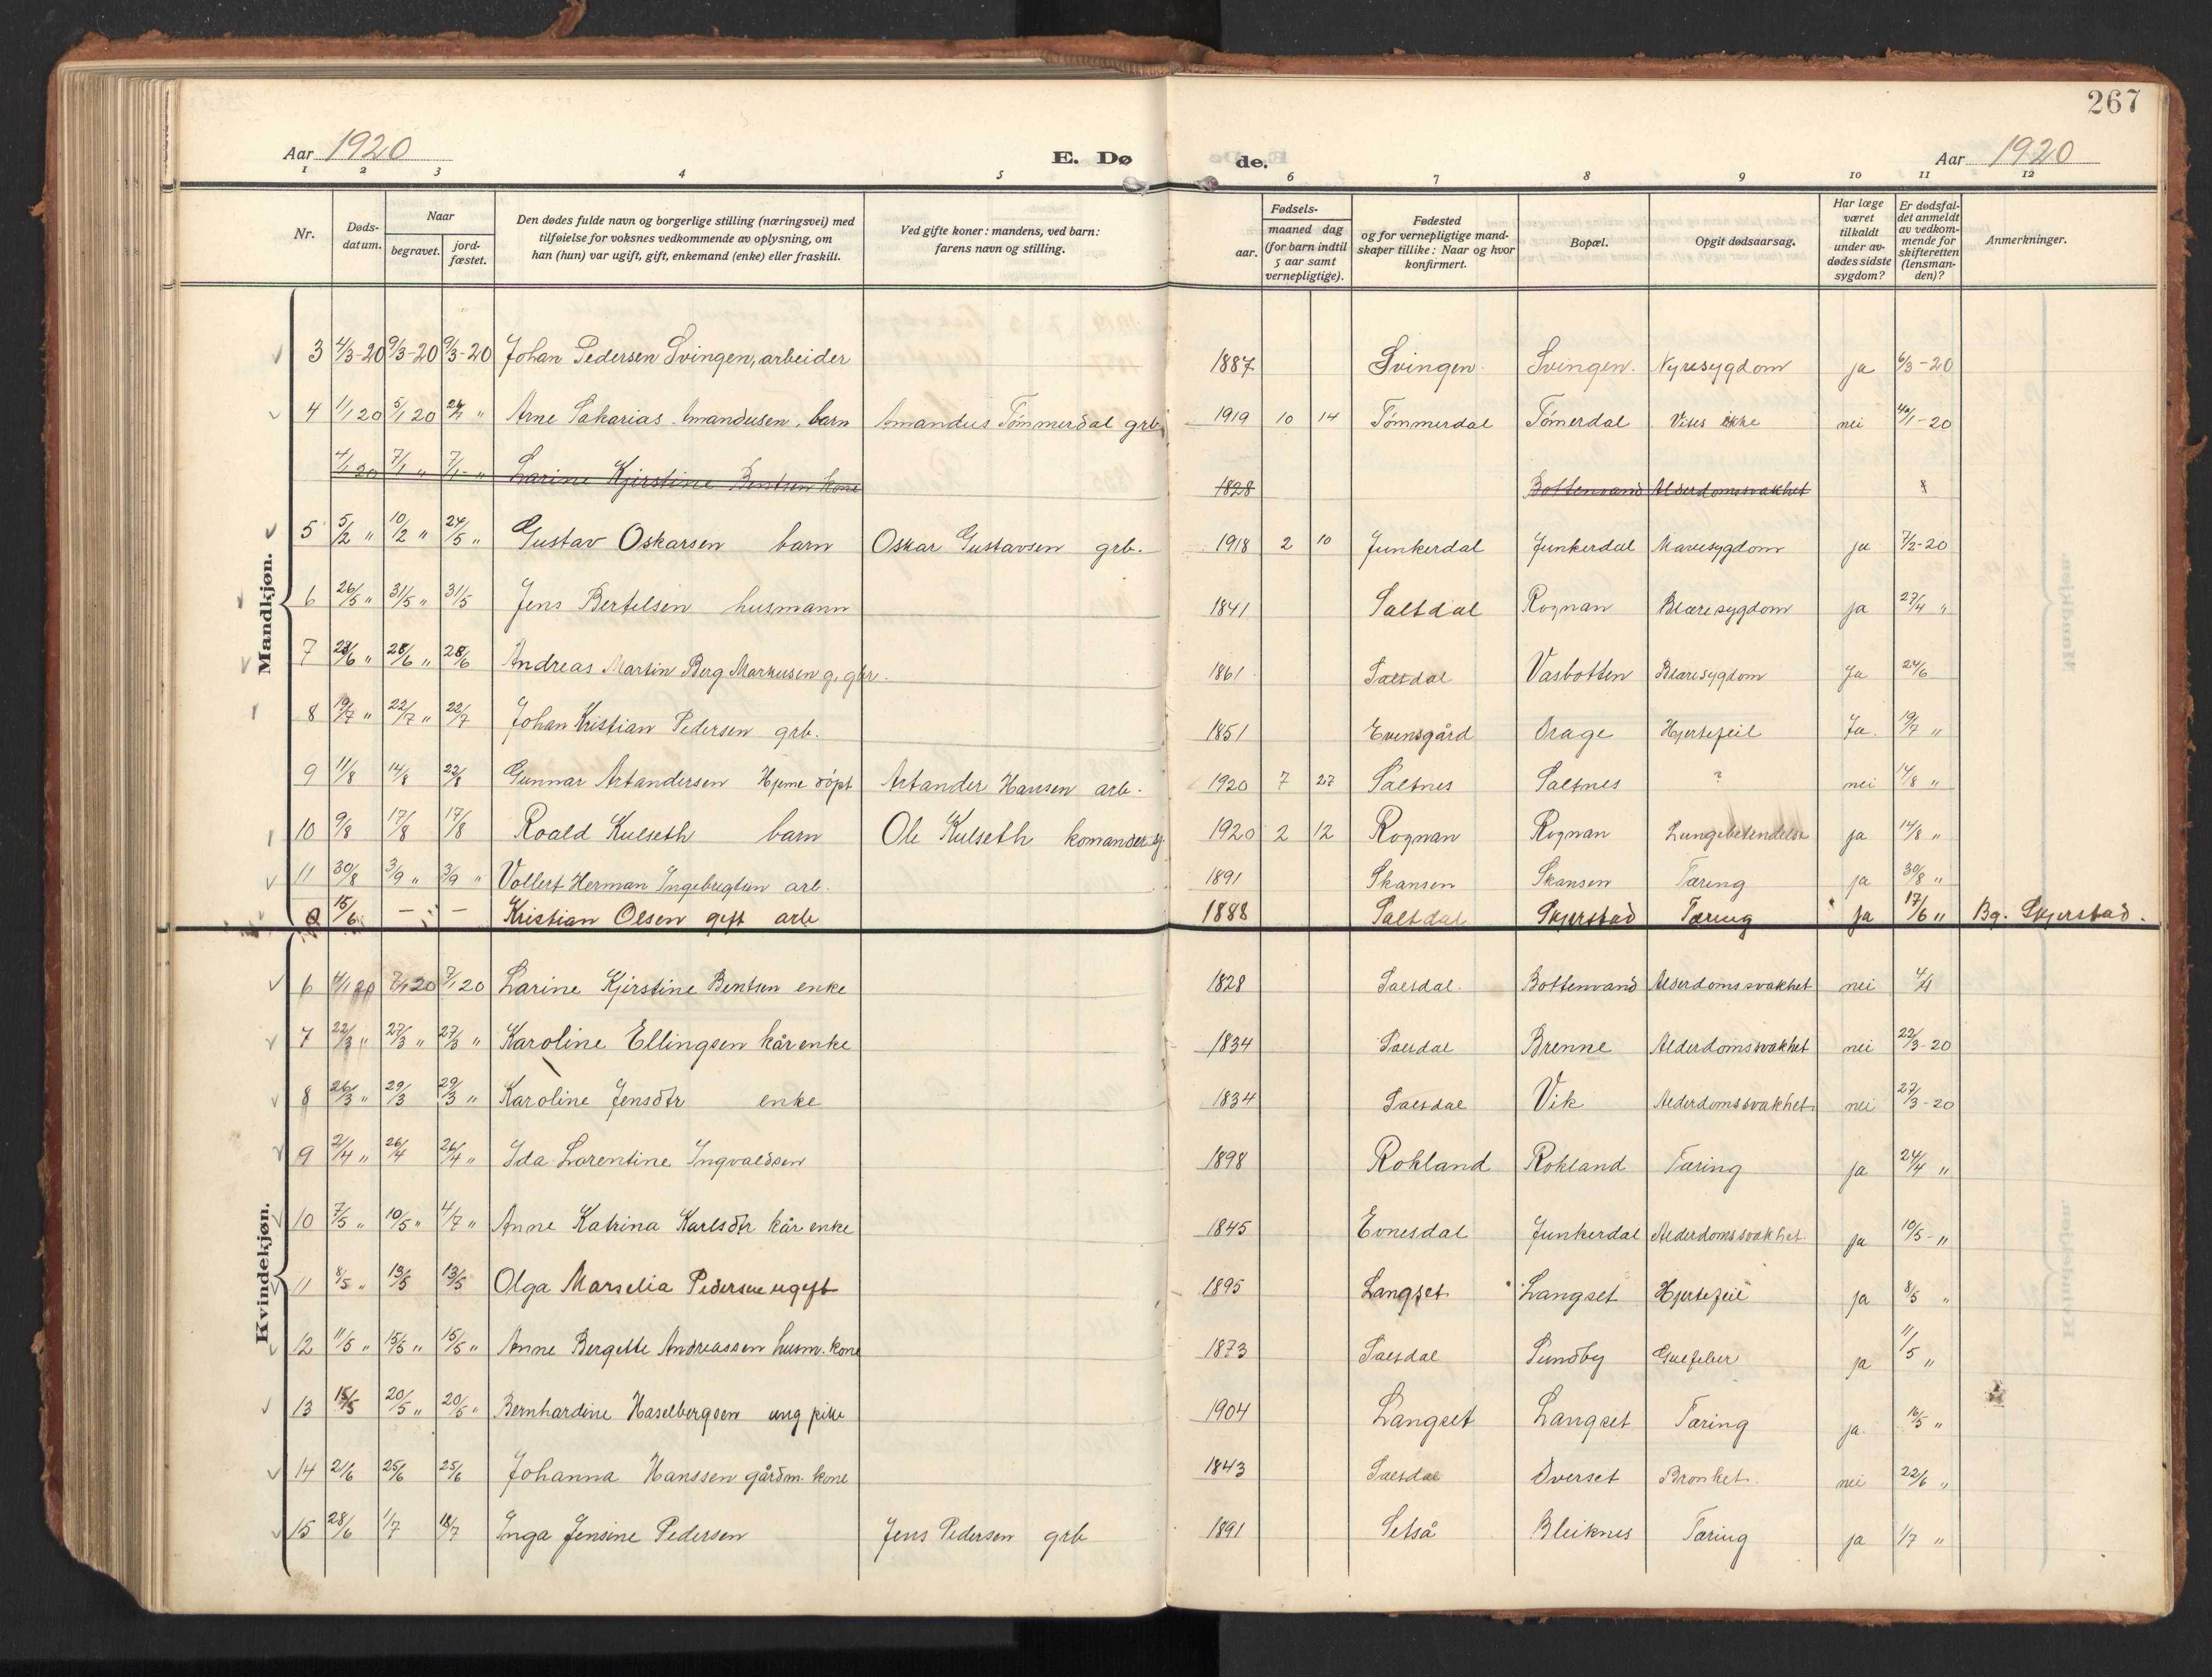 267
Aar 1920 E. Dø de. Aar 1920
1 2 3 4 5 6 7 8 9 10 11 12
Nr. Døds-datum. Naar begravet. jord-fæstet. Den dødes fulde navn og borgerlige stilling (næringsvei) med tilføielse for voksnes vedkommende av oplysning, om han (hun) var ugift, gift, enkemand (enke) eller fraskilt. Ved gifte koner: mandens, ved barn: farens navn og stilling. Fødsels- aar. maaned dag (for barn indtil 5 aar samt vernepligtige). Fødested og for vernepligtige mand-skaper tillike: Naar og hvor konfirmert. Bopæl. Opgit dødsaarsag. Har læge været tilkaldt under av-dødes sidste sygdom? Er dødsfal-det anmeldt av vedkom-mende for skifteretten (lensman-den)? Anmerkninger.
Mandkjøn.
3 4/3-20 9/3-20 9/3-20 Johan Pedersen Svingen, arbeider 1887 Svingen. Svingen. Nyresygdom ja 6/3-20
4 1/1 20 5/1 20 Arne Sakarias Amandusen, barn Amandus Tömmerdal grb. 1919 10 14 Tömmerdal Tömerdal Vites ikke nei -20
4/1 20 7/1 " 7/1 - " Larine Kjerstine Bentsen kone 1828 Bottenvand Alderdomssvakhet
5 5/2 " 10/2 " 24/5 " Gustav Oskarsen barn Oskar Gustavsen grb. 1918 2 10 Junkerdal Junkerdal Mavesygdom ja 7/2-20
6 26/5 " 31/5 " 31/5 Jens Bertelsen husmann 1841 Saltdal Rognan Blæresygdom ja 27/4 "
7 23/6 " 28/6 " 28/6 Andreas Martin Berg Markusen g, gbr. 1861 Saltdal Vasbotten Blæresygdom Ja 24/6
8 19/7 " 22/7 " 22/7 Johan Kristian Pedersen grb. 1851 Evensgård Drage Hjertefeil Ja. 19/7 "
9 11/8 14/8 22/8 Gunnar Artandersen Hjeme döpt Artander Hansen arb. 1920 7 27 Saltnes Saltnes ? nei 14/8 "
10 9/8 17/8 17/8 Roald Kulseth barn Ole Kulseth 1920 2 12 Rognan Rognan Lungebetendelse ja 14/8 "
11 30/8 3/9 " 3/9 " Vollert Herman Ingebregtsen arb. 1891 Skansen Skansen Tæring ja 30/8 "
0 15/6 - - Kristian Olsen gift arb 1888 Saltdal Skjerstad Tæring ja 17/6 " Bg. Skjerstad.
Kvindekjøn.
6 4/1 20 7/1 20 7/1 20 Larine Kjerstine Bentsen enke 1828 Saltdal. Bottenvand Alderdomssvakhet nei 4/1
7 22/3 " 27/3 " 27/3 " Karoline Ellingsen kårenke 1834 Saltdal Brenne Alderdomssvakhet nei 22/3-20
8 26/3 " 29/3 29/3 " Karoline Jensdtr enke 1834 Saltdal Vik Alderdomssvakhet. nei 27/3-20
9 21/4 " 26/4 26/4 " Ida Lorentine Ingvaldsen 1898 Rokland Rokland Tæring ja 24/4 "
10 7/5 " 10/5 " 4/7 " Anne Katrina Karlsdtr kår enke 1845 Evnesdal Junkerdal Alderdomssvakhet. ja 10/5-"
11 8/5 " 13/5 13/5 Olga Marselia Pedersen ugift 1895 Langset Langset Hjertefeil ja 8/5 "
12 11/5 " 15/5 " 15/5 " Anne Bergette Andreassen husm. kone 1873 Saltdal Sundby Gulfeber ja 11/5 "
13 15/5 20/5 " 20/5 " Bernhardine Haselbergsen ung pike 1904 Langset Langset Tæring ja. 16/5 "
14 21/6 25/6 25/6 Johanna Hanssen gårdm. kone 1843 Saltdal Överset Bronket. nei 22/6 "
15 28/6 1/7 18/7 Inga Jensine Pedersen Jens Pedersen grb 1891 Setså Bleiknes Tæring ja 1/7 "